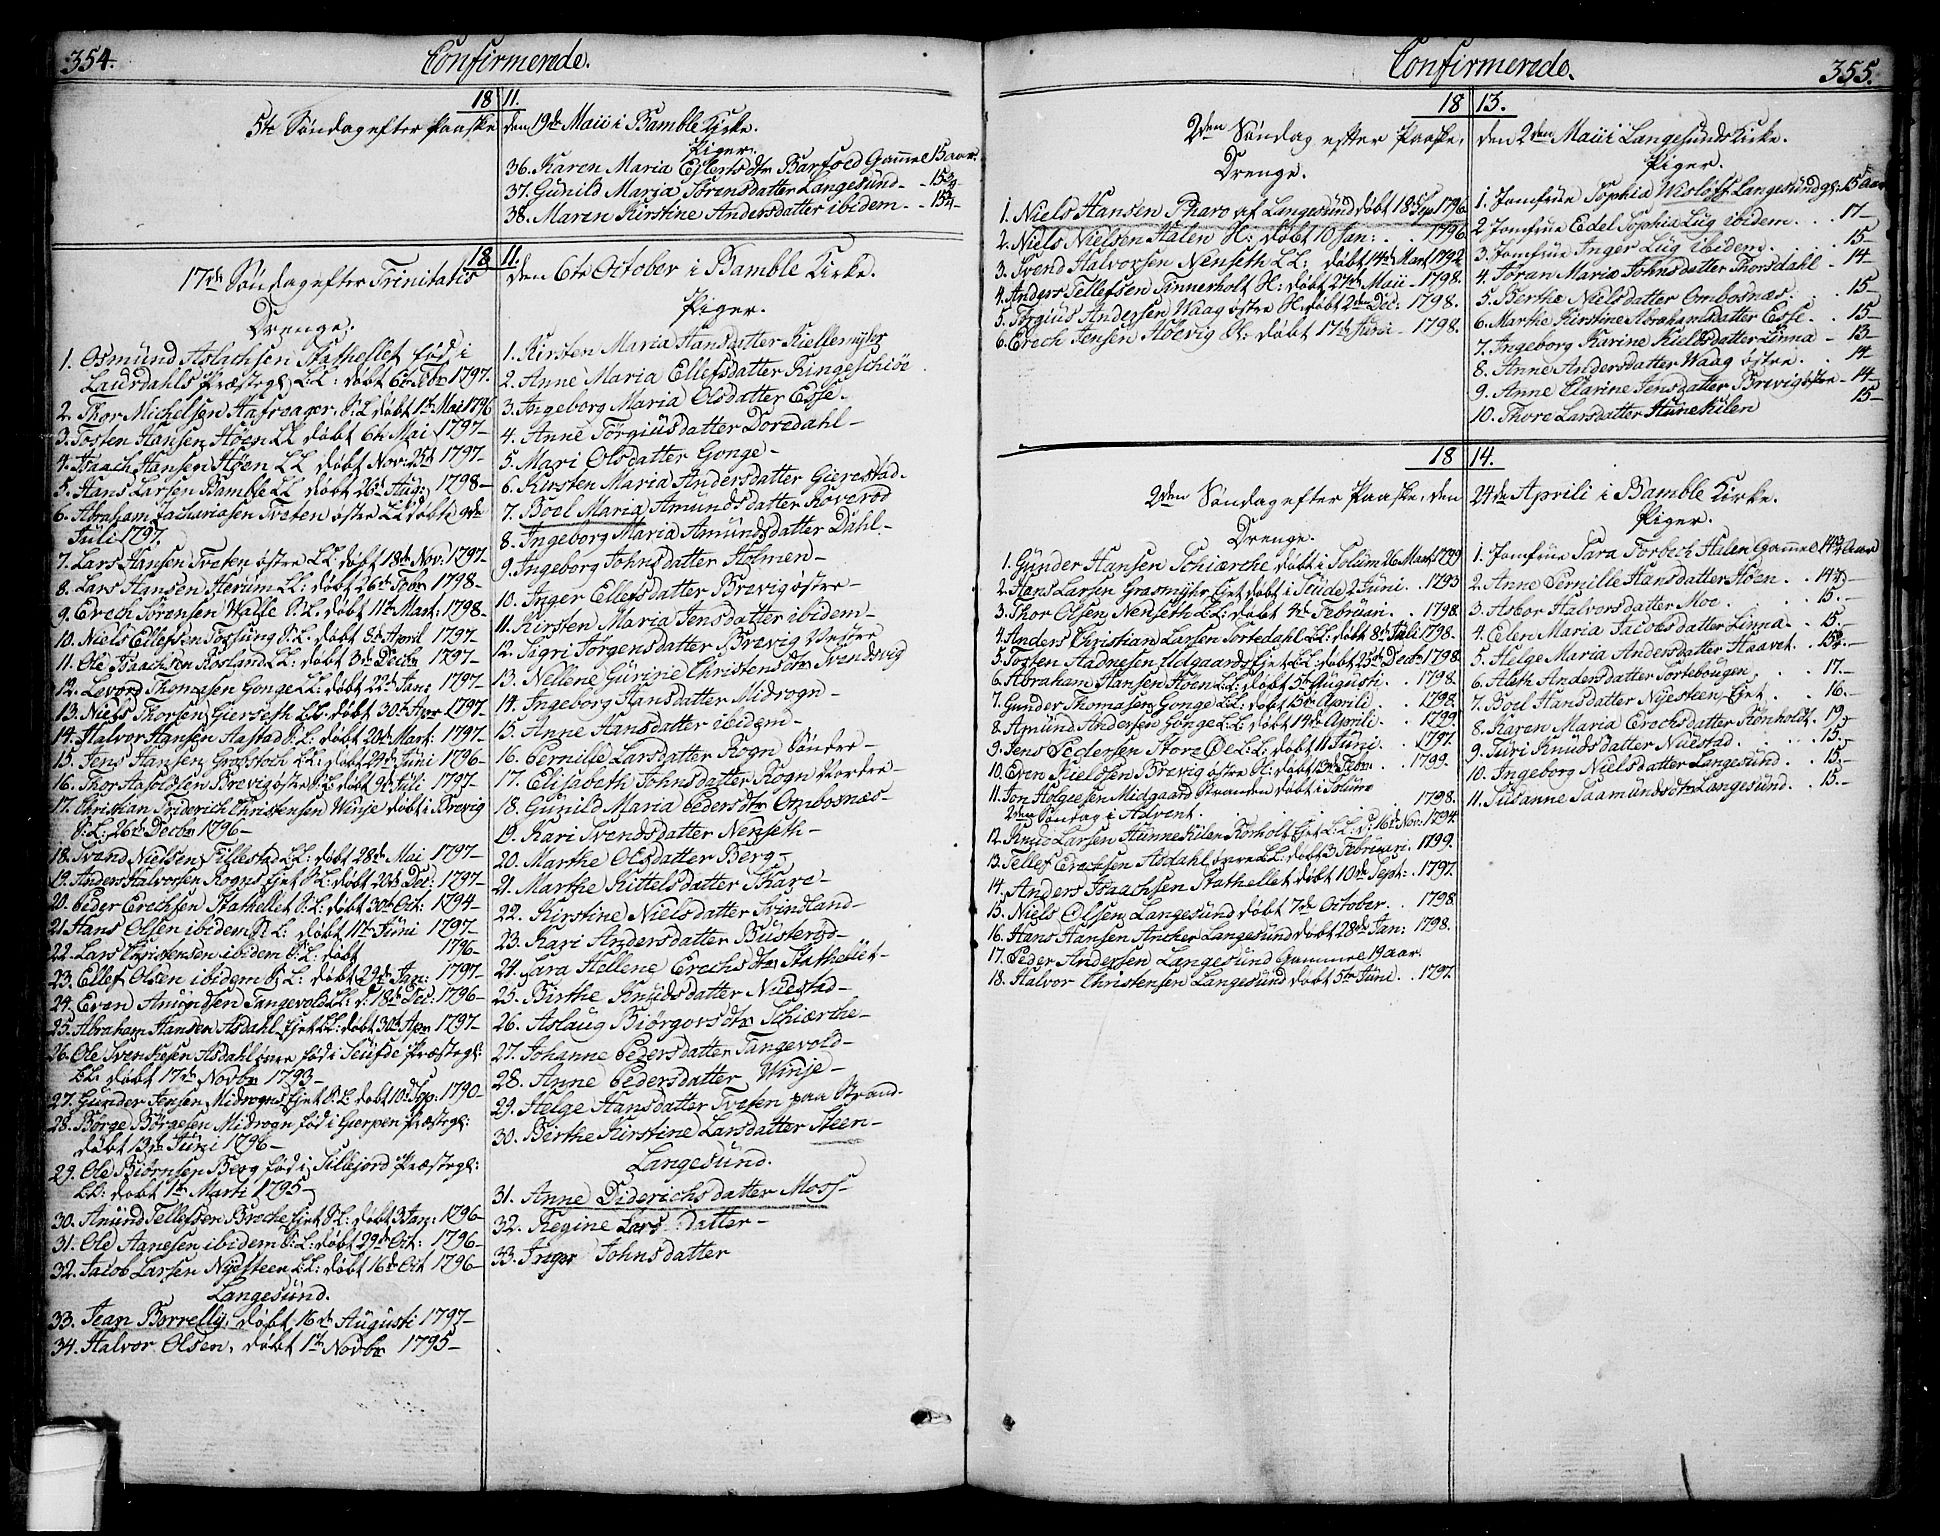 354.
Confirmerede.
18 11.
5te Søndag efter Paaske den 19de Maii i Bamble Kirke.
Piger.
36. Karen Maria Ejlertsdtr Barfod Gammel 15 aar.
37. Gunild Maria Sørensdatter Langesund - 15¾
38. Maren Kirstine Andersdatter ibidem - 15¼
18 11.
17de Søndag efter Trinitatis den 6te October i Bamble Kirke.
Drenge.
1. Osmund Aslachsen Stathellet fød i
Laurdahls Præstegl. LL: døbt 6te Febr 1797.
2. Thor Michelsen Aafreager S:L døbt 1te Mai 1796
3. Tosten Hansen Høen LL døbt 6te Mai 1797-
4. Isaach Hansen Høen LL døbt Nov: 25d 1797.
5. Hans Larsen Bamble LL døbt 26de Aug: 1798-
6. Abraham Zachariasen Tveten østre LL døbt 9de
Juli 1797.
7. Lars Hansen Tveten østre LL døbt 13de Nov. 1797-
8. Lars Hansen Herum LL: døbt 26de 1798-
9. Erech Sørensen Valle S:L: døbt 11te Mart: 1798.
10. Niels Ellefsen Fossung S:L: døbt 8de April 1797-
11. Ole Isaachsen Rosland LL: døbt 3de Decbr 1797-
12. Levord Thomasen Gonge LL: døbt 22de Jan: 1797-
13. Niels Thorsen Gierseth LL: døbt 30te Apr 1797-
14. Halvor Hansen Aastad S:L: døbt 20de Mart: 1797-
15. Jens Hansen Grobstoch LL: døbt 29de Juni 1796-
16. Thor Brevig østre S:L døbt 9de Juli 1797-
17. Christian Friderich Christensen Winje døbt i Brevig
S:L: 26de Decbr 1796-
18. Svend Nielsen Fillestad LL: døbt 28de Mai 1797-
19. Anders Halvorsen Rogns Ejet S:L: døbt 20de Dec: 1797-
20. Peder Erechsen Stathellet S:L: døbt 30te Oct: 1794-
21 Hans Olsen ibidem S:L: døbt 11te Juni 1797-
22. Lars Christensen ibidem S:L: døbt 1796-
23. Ellef Olsen ibidem S:L: døbt 29de Jan: 1797-
24. Even Amundsen Tangevold LL: d: 18de Dec: 1796-
25. Abraham Hansen Asdahl Ejet LL: døbt 30te Apr 1797-
26. Ole Svenkesen Asdahl øvre fød i Seufde Præstegl:
LL: døbt 17de Novbr 1793-
27. Gunder Jensen Midrogns Ejet S:L døbt 10de Sep: 1790-
28. Børge Børgesen Midrogn fød i Gierpen Præstegl:
døbt 13de Juni 1796-
29. Ole Biørnsen Berg fød i Sillejord Præstegl:
LL: døbt 1te Marti 1795-
30. Amund Tellefsen Broche Ejet S:L: døbt 3 Jan: 1796-
31. Ole Aanesen ibidem S:L: døbt 29de Oct: 1796-
32. Jacob Larsen Nydsteen LL: døbt 16de Oct 1796-
Langesund.
33. Jean Borrelly, døbt 16de Augusti 1797-
34. Halvor Olsen, døbt 1te Novbr 1795-
Piger.
1. Kirsten Maria Hansdatter Kiellemyhr
2. Anne Maria Ellefsdatter Ringeschiöe
3. Ingeborg Maria Olsdatter Esse.
4. Anne Törgiusdatter Doredahl-
5. Mari Olsdatter Gonge-
6. Kirsten Maria Andersdatter Gierestad-
7. Boel Maria Amundsdatter Roverød
8. Ingeborg Maria Amundsdatter Dahl-
9. Ingeborg Johnsdatter Holmen-
10. Inger Ellefsdatter Brevig østre-
11. Kirsten Maria Jensdatter ibidem-
12. Sigri Jörgensdatter Brevig Vestre
13. Nellene Gurine Christensdtr Svendsvig
14. Ingeborg Hansdatter Midrogn-
15. Anne Hansdatter ibidem-
16. Pernille Larsdatter Rogn Søndre-
17. Elisabeth Johnsdatter Rogn Nordre-
18. Gunild Maria Pedersdtr Ombosnæs-
19. Kari Svendsdatter Nenseth-
20. Marthe Olsdatter Berg-
21. Marthe Kittelsdatter Skare-
22. Kirstine Nielsdatter Svindland-
23. Kari Andersdatter Büsterød-
24. Sara Hellene Erechsdtr Stathellet-
25. Birthe Knudsdatter Nuestad-
26. Aslaug Biørgorsdtr Schiærthe-
27. Johanne Pedersdatter Tangevold-
28. Anne Pedersdatter Winje-
29. Helge Hansdatter Tveten paa Strand-
30. Birthe Kirstine Larsdatter Steen-
Langesund.
31. Anne Diderichsdatter Moss-
32. Regine Lars datter-
33. Inger Johnsdatter
Confirmerede.
355.
18 13.
2den Søndag efter Paaske, den 2den Maii i Langesunds Kirke.
Drenge.
1. Niels Hansen Pharo af Langesund døbt 18 Sep 1796.
2. Niels Nielsen Halen S: døbt 10 Jan: . . 1796.
3. Svend Halvorsen Nenseth LL: døbt 14de Mart 1792.
4. Anders Tellefsen Tinnerholt S: døbt 27de Maii - 1798.
5. Torgius Andersen Waag østre S: døbt 2den Dec: 1798.
6. Erech Jensen Aabevig S: døbt 17de Juni - 1798.
Piger.
1. Jomfrue Sophia Wisløff Langesund gl: 15 Aar
2 Jomfrue Edel Sophia Lug ibidem . . 17-
3. Jomfrue Inger Lug ibidem . . . 15-
4. Joran Maria Johnsdatter Thorsdahl - 14
5. Berthe Nielsdatter Ombosnæs . . 15-
6. Marthe Kirstine Abrahamsdatter Esse . 15-
7. Ingeborg Karine Kieldsdatter Linna - 13-
8. Anne Andersdatter Waag østre . . 14
9. Anne Clarine Jensdatter Brevig østre - 14-
10. Thore Larsdatter Hunekilen 15-
18 14.
2den Søndag efter Paaske, den 24de Aprili i Bamble Kirke.
Drenge.
1. Gunder Hansen Schiærche døbt i Solum 26 Mart 1799
2. Hans Larsen Grasmyhr Ejet døbt i Seude 2 Juni . 1793
3. Thor Olsen Nenseth LL: døbt 4de Februari . . 1798.
4. Anders Christian Larsen Tortedahl LL: døbt 8de Juli 1798.
5. Tosten Hadnesen Ejet LL døbt 25de Decbr 1798.
6. Abraham Hansen Høen LL: døbt 5te Augusti . . 1798.
7. Gunder Thomasen Gonge LL: døbt 15de Aprili . 1798.
8. Amund Andersen Gonge LL: døbt 14de Aprili . . 1799.
9. Jens Pedersen Store Øe LL: døbt 11 Juni . . 1797.
10. Even Kieldsen Brevig østre S: døbt 13de Febr . . 1799.
11. Jon Helgesen Midgaard Stranden døbt i Solum
1798.
2den Søndag i Advent.
12. Knud Larsen Hunnekilen Rønholt Ejet LL: d: 16de Nov: 1794.
13. Tellef Erechsen Asdahl øvre LL: døbt 3 Februari . 1799.
14. Anders Isaachsen Stathellet døbt 10de Sept: . 1797.
15. Niels Olsen Langesund døbt 7de October . . 1798.
16. Hans Hansen Ancher Langesund døbt 28de Jan: 1798.
17. Peder Andersen Langesund Gammel 19 aar.
18. Halvor Christensen Langesund døbt 5te Juni . . 1797.
Piger.
1. Jomfrue Sara Forbech Halen Gammel 14¾ Aar
2. Anne Pernille Hansdatter Høen . . 14¾-
3. Asbor Halvorsdatter Moe . . . 15.-
4. Elen Maria Jacobsdatter Linna . 15.-
5. Helge Maria Andersdatter Haavet . 15¾.-
6. Aleth Andersdatter Tortebougen . 17.-
7. Boel Hansdatter Nyesteen Ejet . . 16.-
8. Karen Maria Erechsdatter Rønholdt . 19.-
9. Turi Knudsdatter Nuestad . . . 15.-
10. Ingeborg Nielsdatter Langesund . 15.-
11. Susanne Saamundsdtr Langesund . 15.-